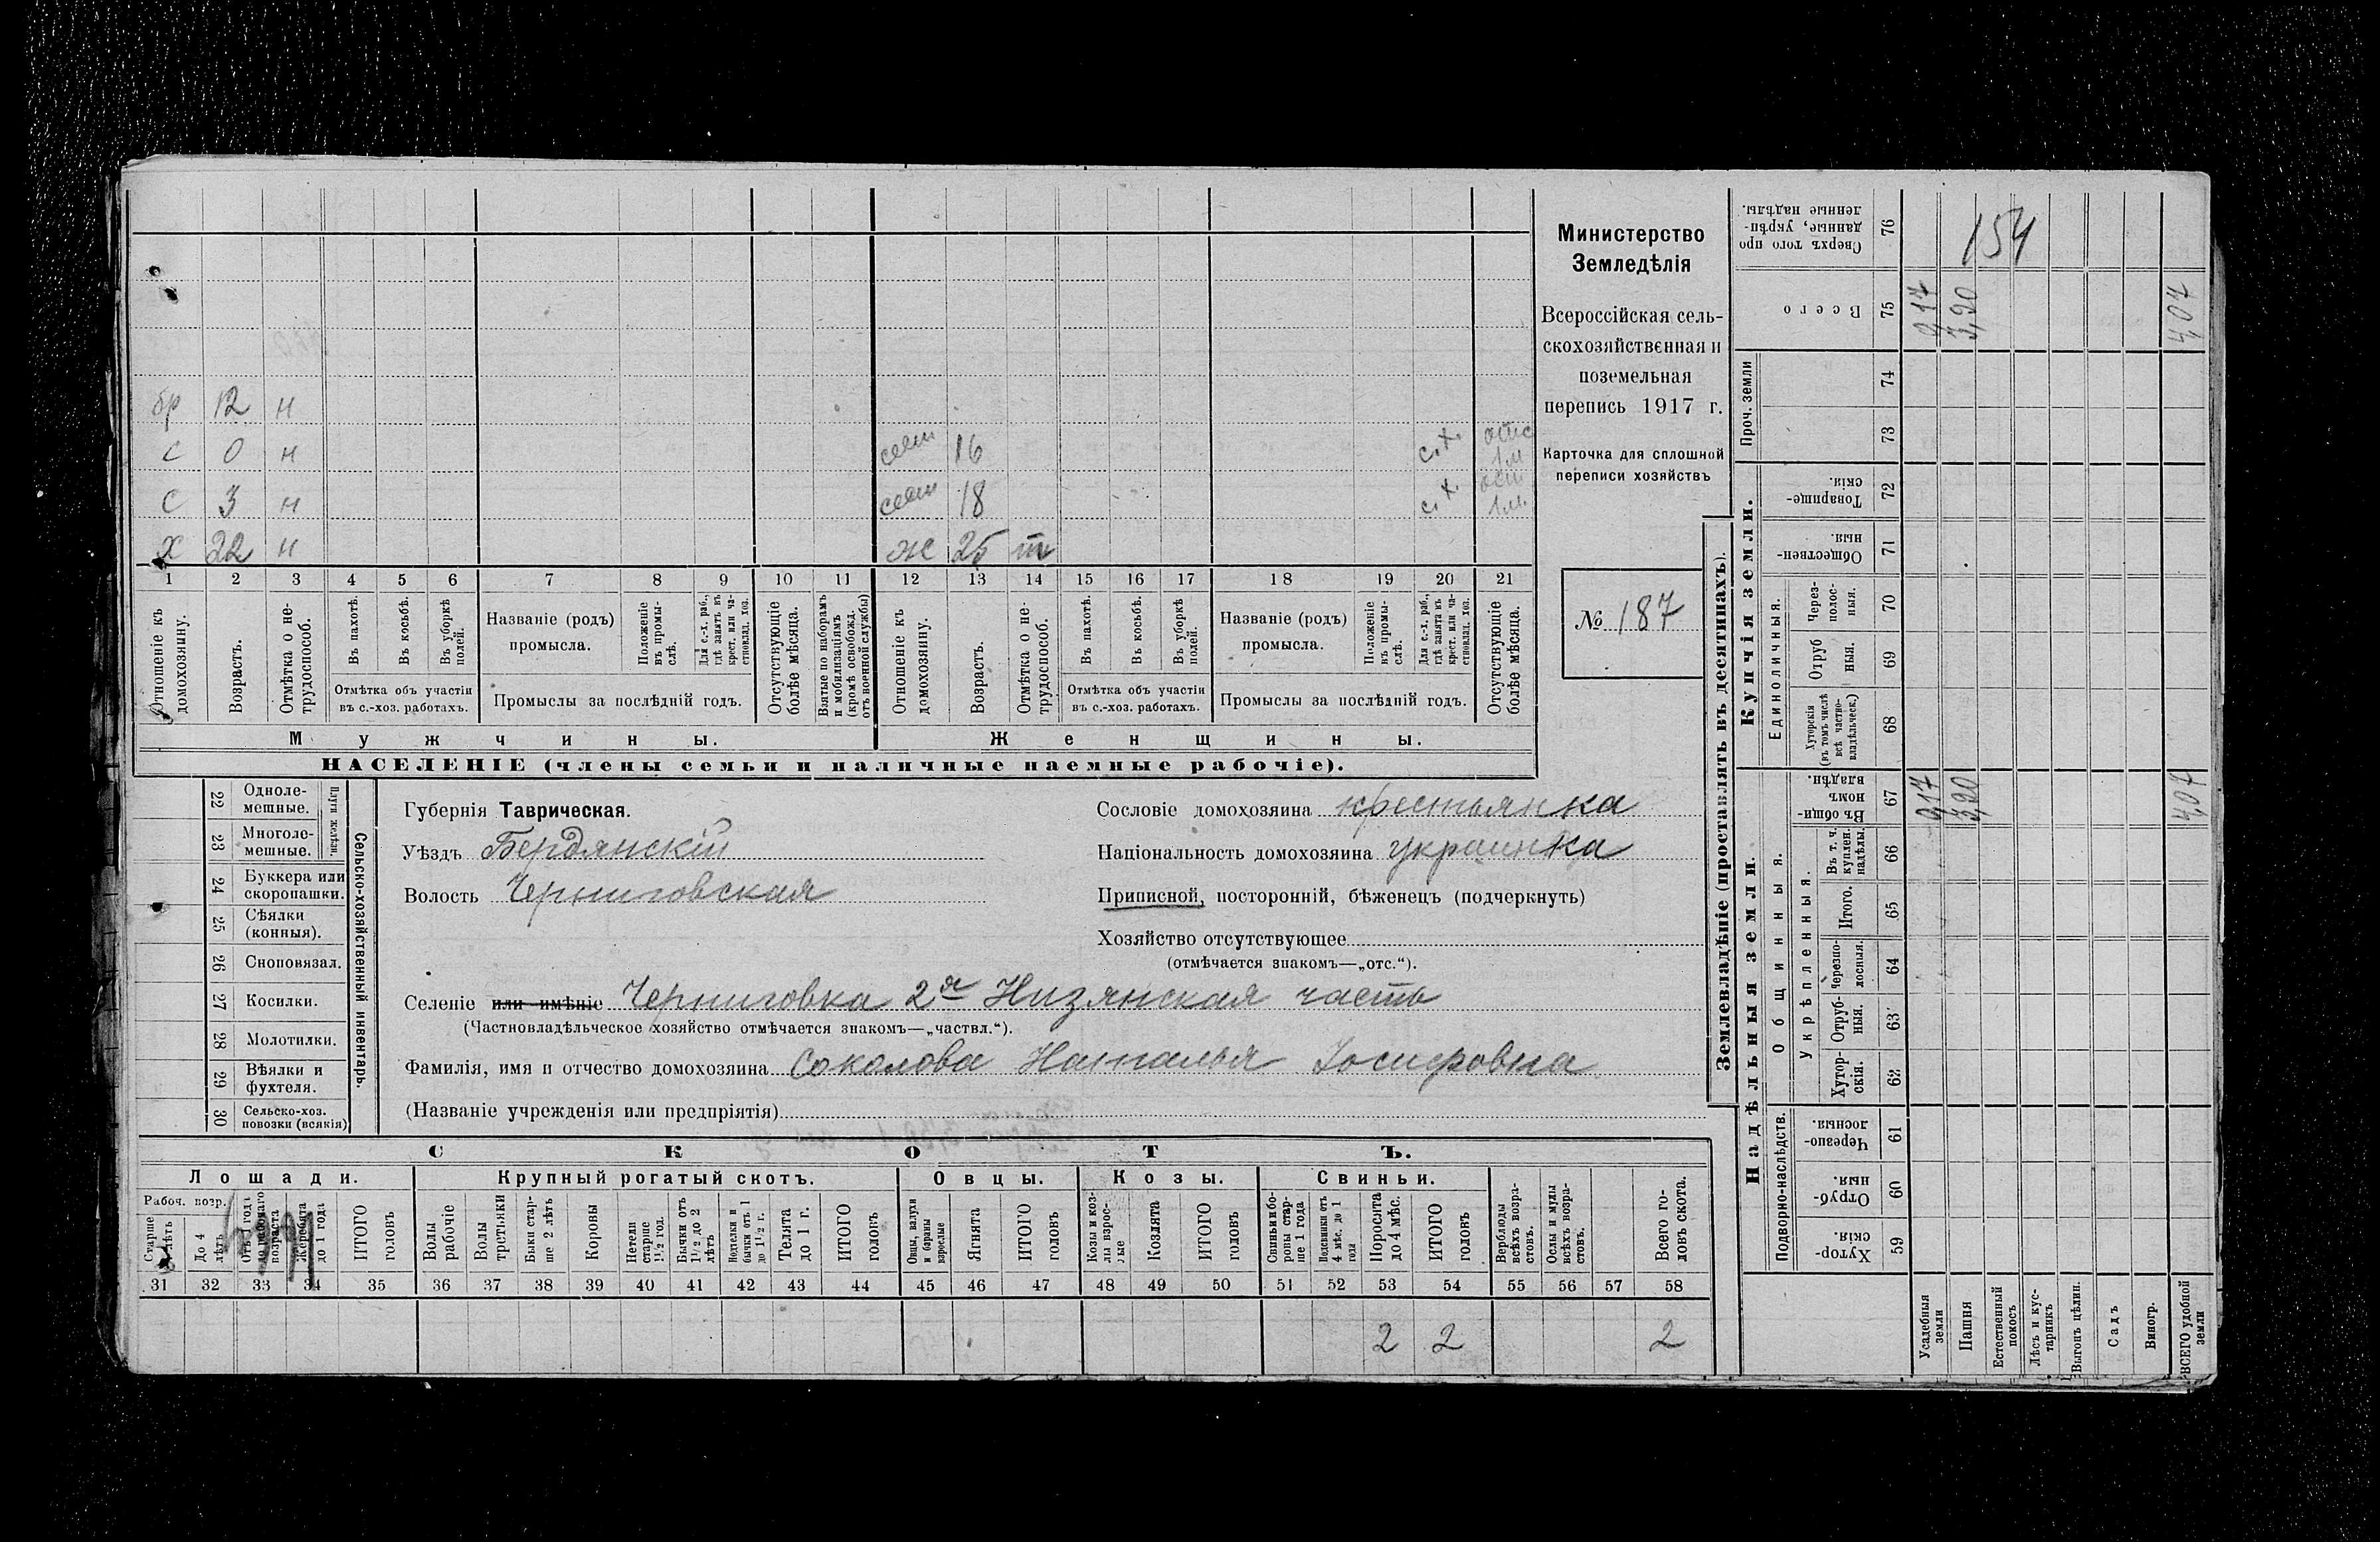 бр 12 н
с 0 н сест 16 с.х. отс 1м
с 3 н сест 18 с.х. 1м.
х 22 н ж 25 т
1 2 3 4 5 6 7 8 9 10 11 12 13 14 15 16 17 18 19 20 21
Отношеніе къ домохозяину.
Возрастъ.
Отмѣтка о не-
трудоспособ.
Въ пахотѣ.
Въ косьбѣ.
Въ уборкѣ полей.
Отмѣтка объ участіи
въ с.-хоз. работахъ.
Названіе (родъ)
промысла.
Положеніе
въ промы-
слѣ.
Для с.-х. раб.,
гдѣ занятъ въ
крест. или ча-
стновлад. хоз.
Промыслы за послѣдній годъ.
Отсутствующіе
болѣе мѣсяца.
Взятые по наборамъ
и мобилизаціямъ
(кромѣ освобожд.
отъ военной службы)
Отношеніе къ
домохозяину.
Возрастъ.
Отмѣтка о не-
трудоспособ.
Въ пахотѣ.
Въ косьбѣ.
Въ уборкѣ
полей.
Отмѣтка объ участіи
въ с.-хоз. работахъ.
Названіе (родъ)
промысла.
Положеніе
въ промы-
слѣ.
Для с.-х. раб.,
гдѣ занята въ
крест. или ча-
стновлад. хоз.
Промыслы за послѣдній годъ.
Отсутствующіе
болѣе мѣсяца.
Мужчины.
Женщины.
НАСЕЛЕНІЕ (члены семьи и наличные наемные рабочіе).
Министерство
Земледѣлія
Всероссійская сель-
скохозяйственная и
поземельная
перепись 1917 г.
Карточка для сплошной
переписи хозяйствъ
№ 187
22 Одноле-
мешные.
23 Многоле-
мешные.
Плуги желѣзн.
24 Буккера или
скоропашки.
25 Сѣялки
(конныя).
26 Сноповязал.
27 Косилки.
28 Молотилки.
29 Вѣялки и
фухтеля.
30 Сельско-хоз.
повозки (всякія)
Сельско-хозяйственный инвентарь.
Губернія Таврическая.
Уѣздъ Бердянскій
Волость Черниговская
Сословіе домохозяина крестьянка
Національность домохозяина украинка
Приписной, посторонній, бѣженецъ (подчеркнуть)
Хозяйство отсутствующее
(отмѣчается знакомъ—„отс.“).
Селеніе или имѣніе Черниговка 2я Низянская часть
(Частновладѣльческое хозяйство отмѣчается знакомъ—„частвл.“).
Фамилія, имя и отчество домохозяина Соколова Наталья Іосифовна
(Названіе учрежденія или предпріятія)
СКОТЪ.
Лошади. Крупный рогатый скотъ. Овцы. Козы. Свиньи.
Рабоч. возр.
Старше
4 лѣтъ
До 4
лѣтъ
Отъ 1 года
до рабочаго
возраста
Жеребята
до 1 года
ИТОГО
головъ
Волы
рабочіе
Волы
третьяки
Быки стар-
ше 2 лѣтъ
Коровы
Нетели
старше
1½ год.
Бычки отъ
1½ до 2
лѣтъ
Нетели и
бычки отъ 1
до 1½ г.
Телята
до 1 г.
ИТОГО
головъ
Овцы, валухи
и бараны
взрослые
Ягнята
ИТОГО
головъ
Козы и коз-
лы взрос-
лые
Козлята
ИТОГО
головъ
Свиньи и бо-
ровы стар-
ше 1 года
Подсвинки отъ
4 мѣс. до 1
года
Поросята
до 4 мѣс.
ИТОГО
головъ
Верблюды
всѣхъ возра-
стовъ.
Ослы и мулы
всѣхъ возра-
стовъ.
Всего го-
ловъ скота.
31 32 33 34 35 36 37 38 39 40 41 42 43 44 45 46 47 48 49 50 51 52 53 54 55 56 57 58
2 2 2
Землевладѣніе (проставлять въ десятинахъ).
Купчія земли.
Надѣльныя земли.
Сверхъ того про
данные, укрѣп-
ленные надѣлы.
76 154
Всего
75 0,17 3,90 4,07
Проч. земли
74
73
Товарище-
скія.
72
Обществен-
ныя.
71
Единоличныя.
Через-
полос-
ныя.
70
Отруб
ныя.
69
Хуторскія
(въ томъ числѣ
всѣ частно-
владѣльческ.)
68
Общинныя.
Въ общи-
номъ
владѣн.
67 0,17 3,90 4,07
Укрѣпленныя.
Въ т. ч.
куплен.
надѣлы.
66
Итого.
65
Черезпо-
лосныя.
64
Отруб-
ныя.
63
Хутор-
скія.
62
Подворно-наслѣдств.
Черезпо-
лосныя.
61
Отруб-
ныя.
60
Хутор-
скія.
59
Усадебныя
земли
Пашня
Естественный
покосъ
Лѣсъ и кус-
тарникъ
Выгонъ цѣлин.
Садъ
Виногр.
ВСЕГО удобной
земли